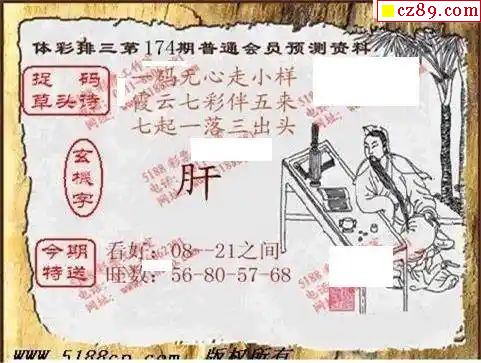 cz89.com
体彩排三第174期普通会员预测资料
捉码
草头诗
一码无心走小样
霞云七彩伴五来
七起一落三出头
玄機字
肝
今期
特送
看好：08--21之间
旺数：56-80-57-68
www.5188cp.com 版权所有